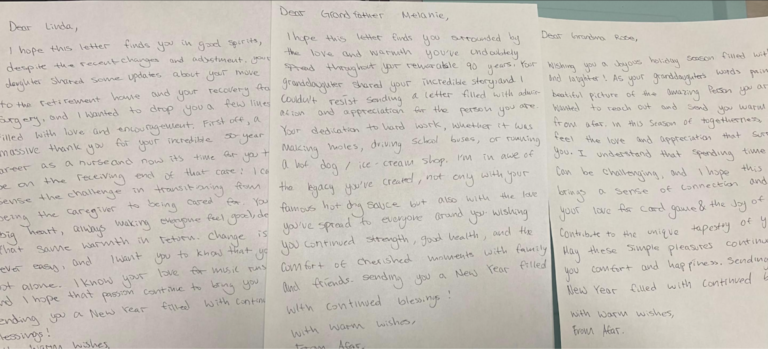 Dear Linda,
I hope this letter finds you in good spirits,
despite the recent changes and adjustment. your
daughter shared some updates about your move
to the retirement house and your recovery fro
surgery, and I wanted to drop you a few lines
filled with love and encouragement. First off, a
massive thank you for your incredible 50-year
career as a nurse and now its time for you t
be on the receiving end of that care! I ca
sense the challenge in transitioning from
being the caregiver to being cared for. You
big heart, always making everyone feel good, de
that same warmth in return. Change is
never easy, and I want you to know that yo
not alone. I know your love for music runs
nd I hope that passion continue to bring you
ending you a New Year filled with contin
lessings!
warm wishes,
Dear Grandfather Melanie,
I hope this letter finds you surrounded by
the love and warmth you've undoubtedly
spread throughout your remarkable 90 years. Your
granddaughter shared your incredible story and I
couldn't resist sending a letter filled with admir-
ation and appreciation for the person you are.
Your dedication to hard work, whether it was
making holes, driving school buses, or running
a hot dog / ice-cream shop. I'm in awe of
the legacy you've created, not only with your
famous hot dog sauce but also with the love
you've spread to everyone around you. Wishing
you continued strength, good health, and the
comfort of cherished moments with family
and friends. Sending you a New Year filled
with continued blessings!
with warm wishes,
From Afar.
Dear Grandma
Wishing you a joyous holiday season filled wit
And laughter! As your granddaughters words pain
beautiful picture of the amazing person you ar
Wanted to reach out and send you warm
from afar. in this season of togetherness
feel the love and appreciation that sur
you. I understand that spending time
can be challenging, and I hope this
brings a sense of connection and
your love for card game & the joy of
contribute to the unique tapestry of y
May these simple pleasures continu
you comfort and happiness. Sending
New Year filled with continued b
with warm wishes,
From Afar.